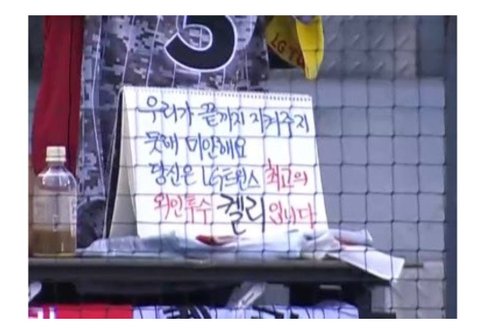 5
LG TW
우리가 끝까지 지켜주지
못해 미안해요
당신은 LG트윈스 최고의
외인투수 켈리 입니다